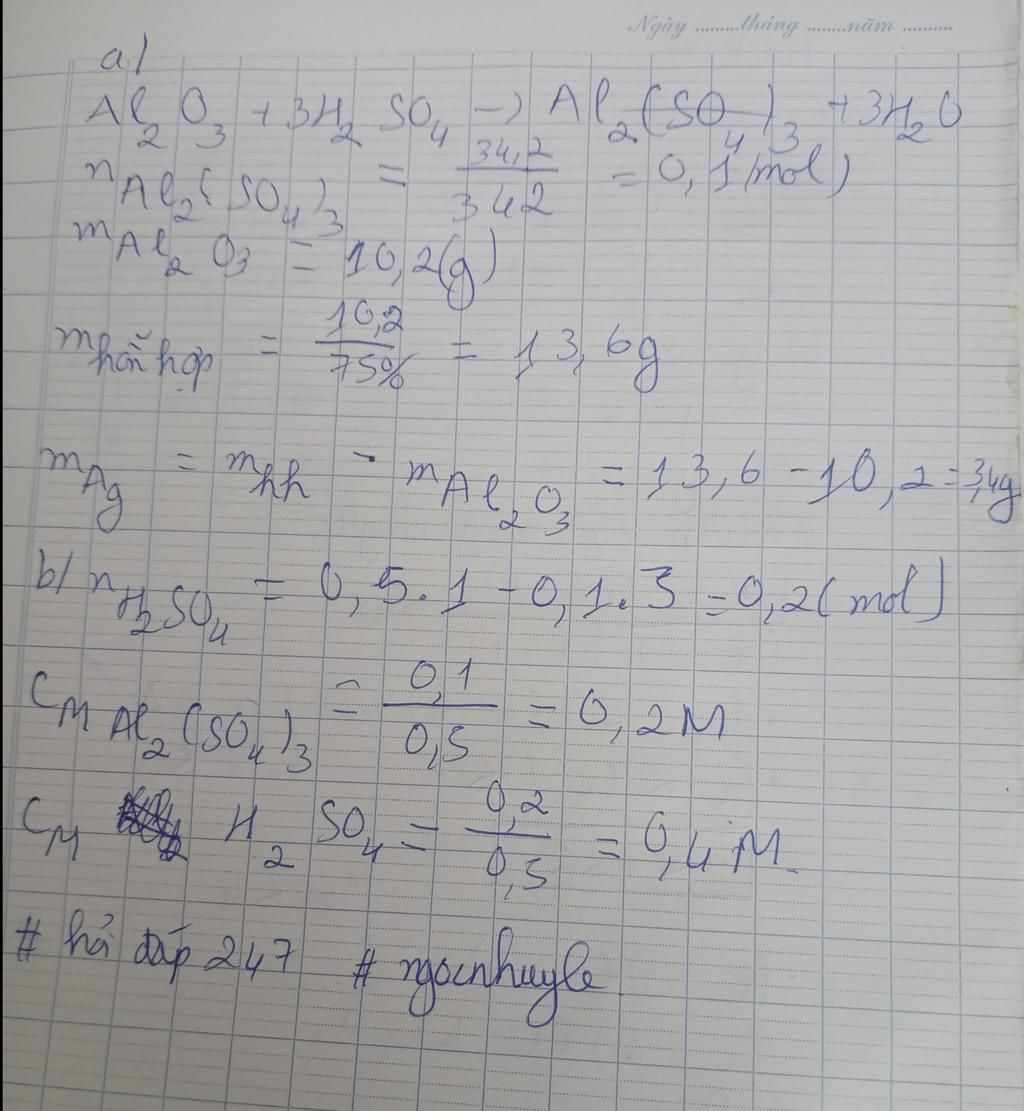 Ngày ..........tháng ........năm ..........
a/
Al2O3 + 3H2SO4 -> Al2(SO4)3 + 3H2O
nAl2(SO4)3 = 34,2/342 = 0,1(mol)
mAl2O3 = 10,2(g)
mhỗn hợp = 10,2/75% = 13,6g
mAg = mhh - mAl2O3 = 13,6 - 10,2 = 3,4g
b/ nH2SO4 = 0,5.1 - 0,1.3 = 0,2(mol)
CM Al2(SO4)3 = 0,1/0,5 = 0,2M
CM H2SO4 = 0,2/0,5 = 0,4M
# hỏi đáp 247 # ngocnhuyle